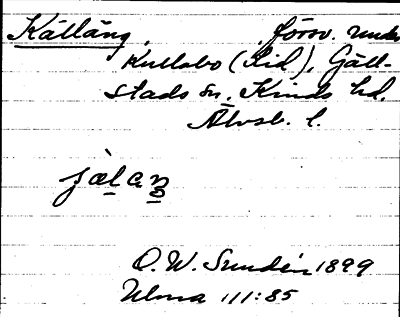 Källäng, försv. under
Kullabo (Kid), Gäll-
stads sn. Kinds hd.
Älvsb. l.
O. W. Sundén 1899
Ulma 111:85